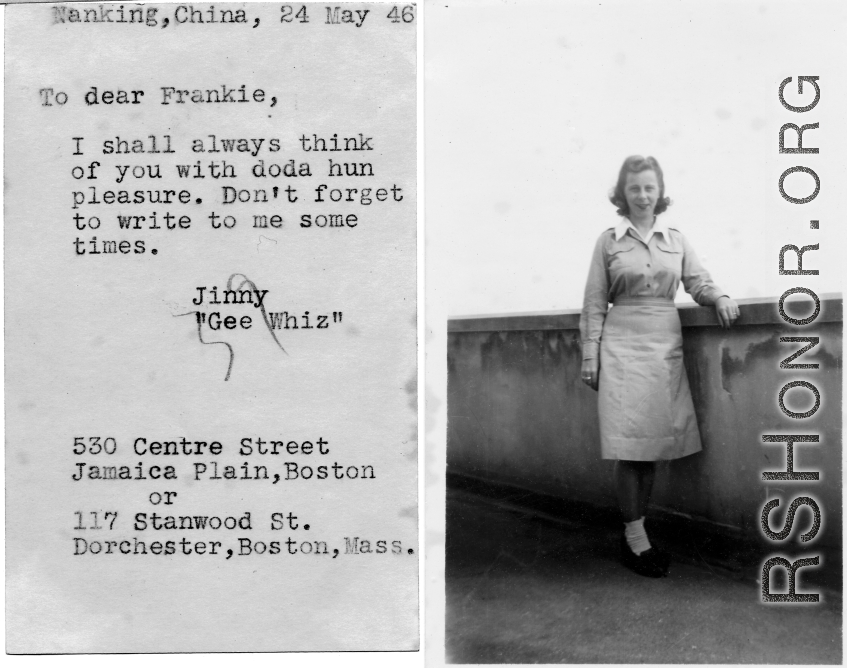 Nanking,China, 24 May 46
To dear Frankie,
I shall always think
of you with doda hun
pleasure. Don't forget
to write to me some
times.
Jinny
"Gee Whiz"
530 Centre Street
Jamaica Plain,Boston
or
117 Stanwood St.
Dorchester,Boston,Mass.
RSHONOR.ORG